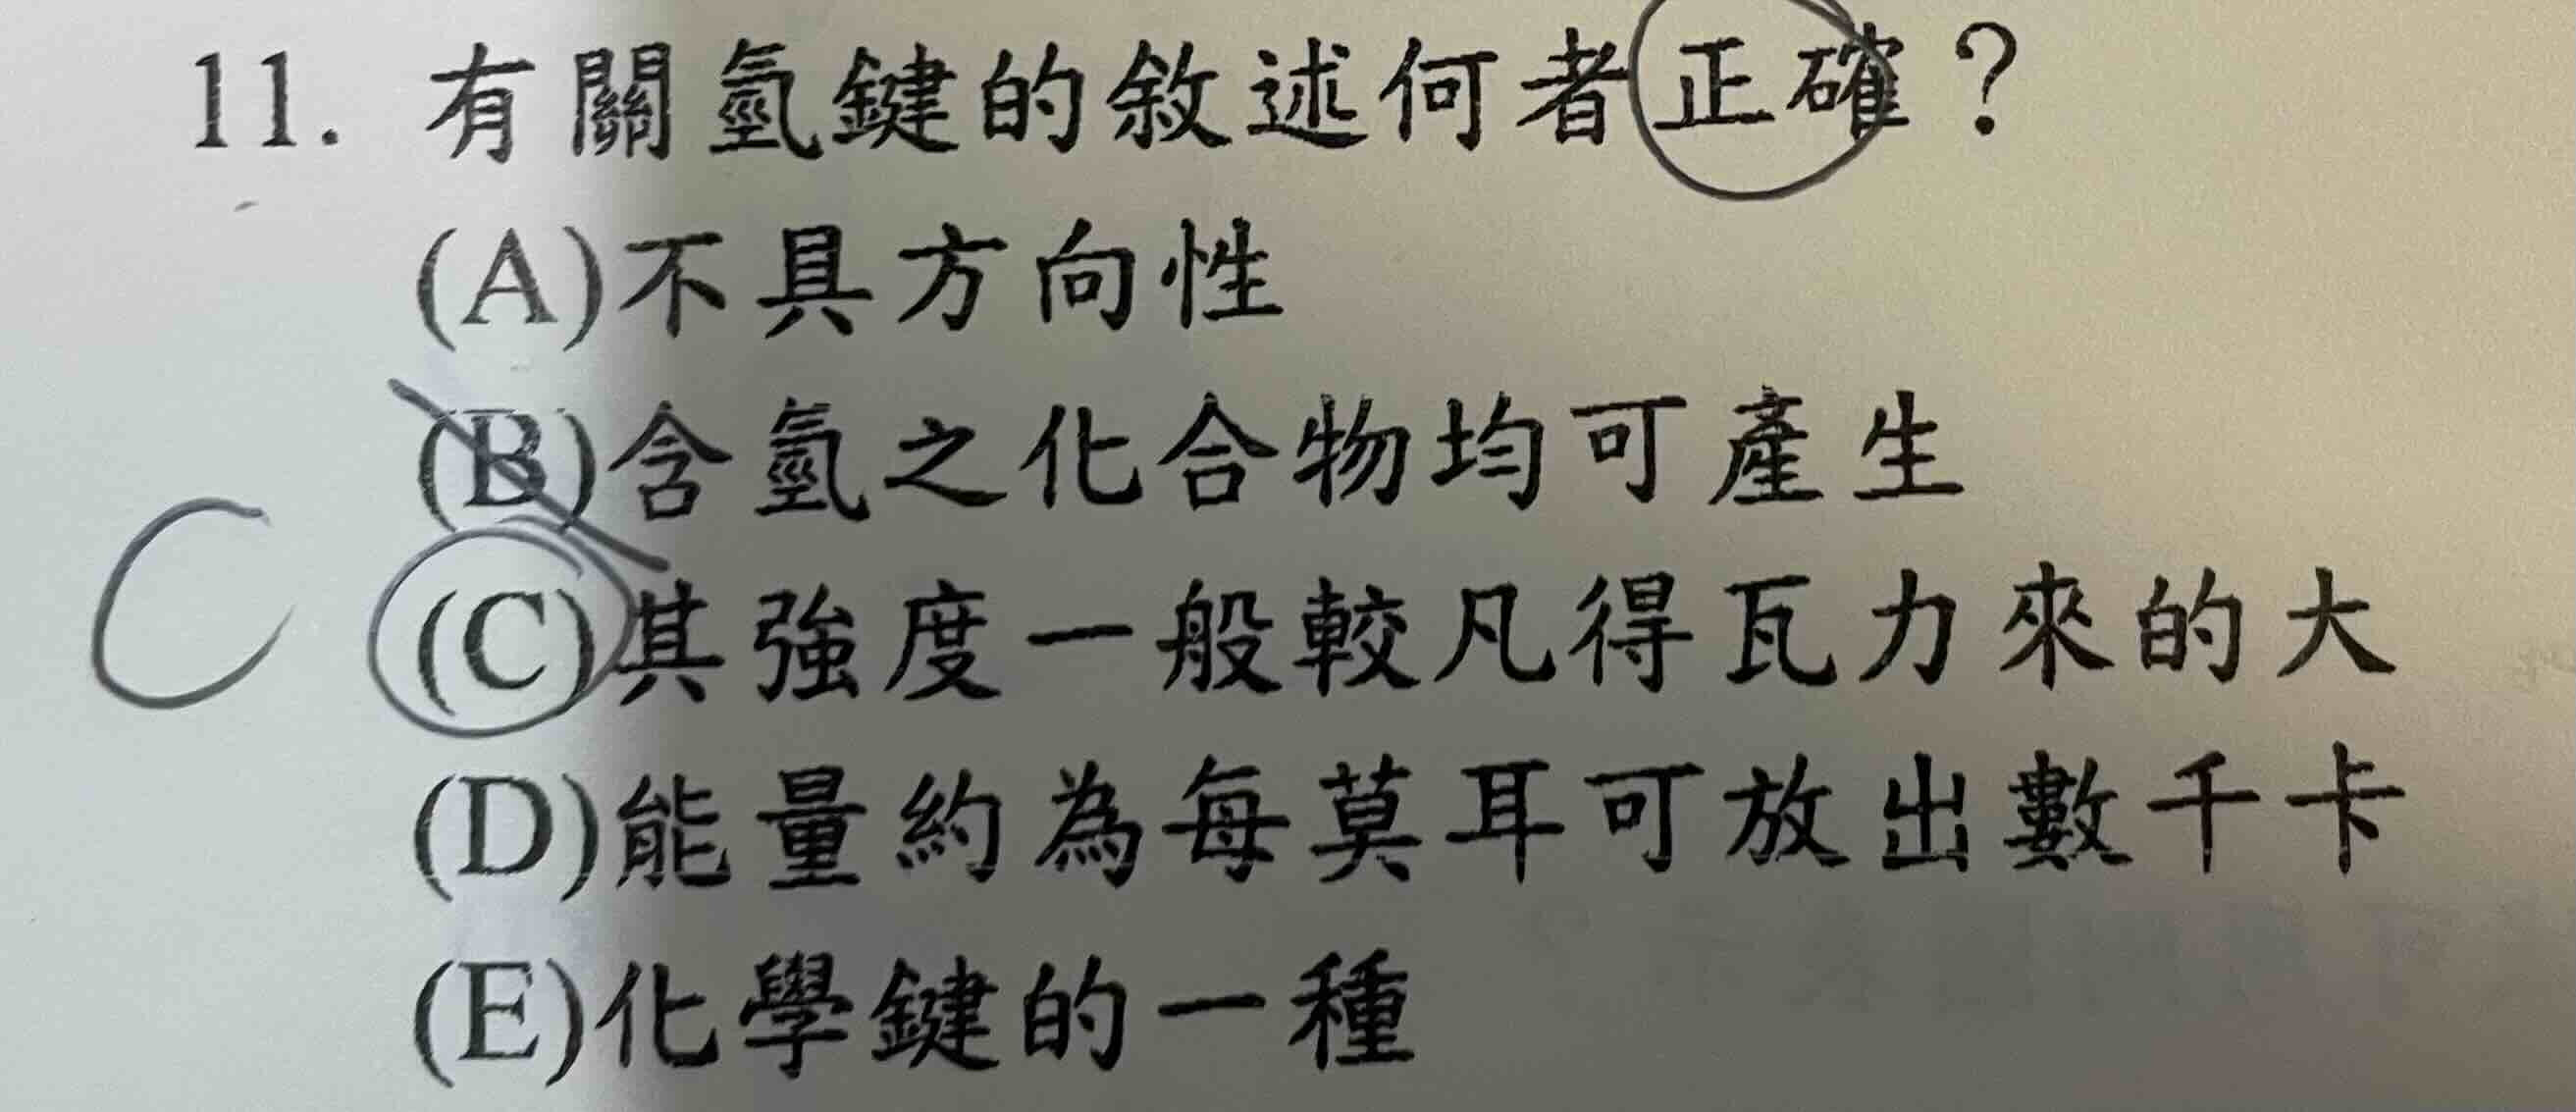 11. 有關氫鍵的敘述何者正確？
(A)不具方向性
(B)含氫之化合物均可產生
C (C)其強度一般較凡得瓦力來的大
(D)能量約為每莫耳可放出數千卡
(E)化學鍵的一種